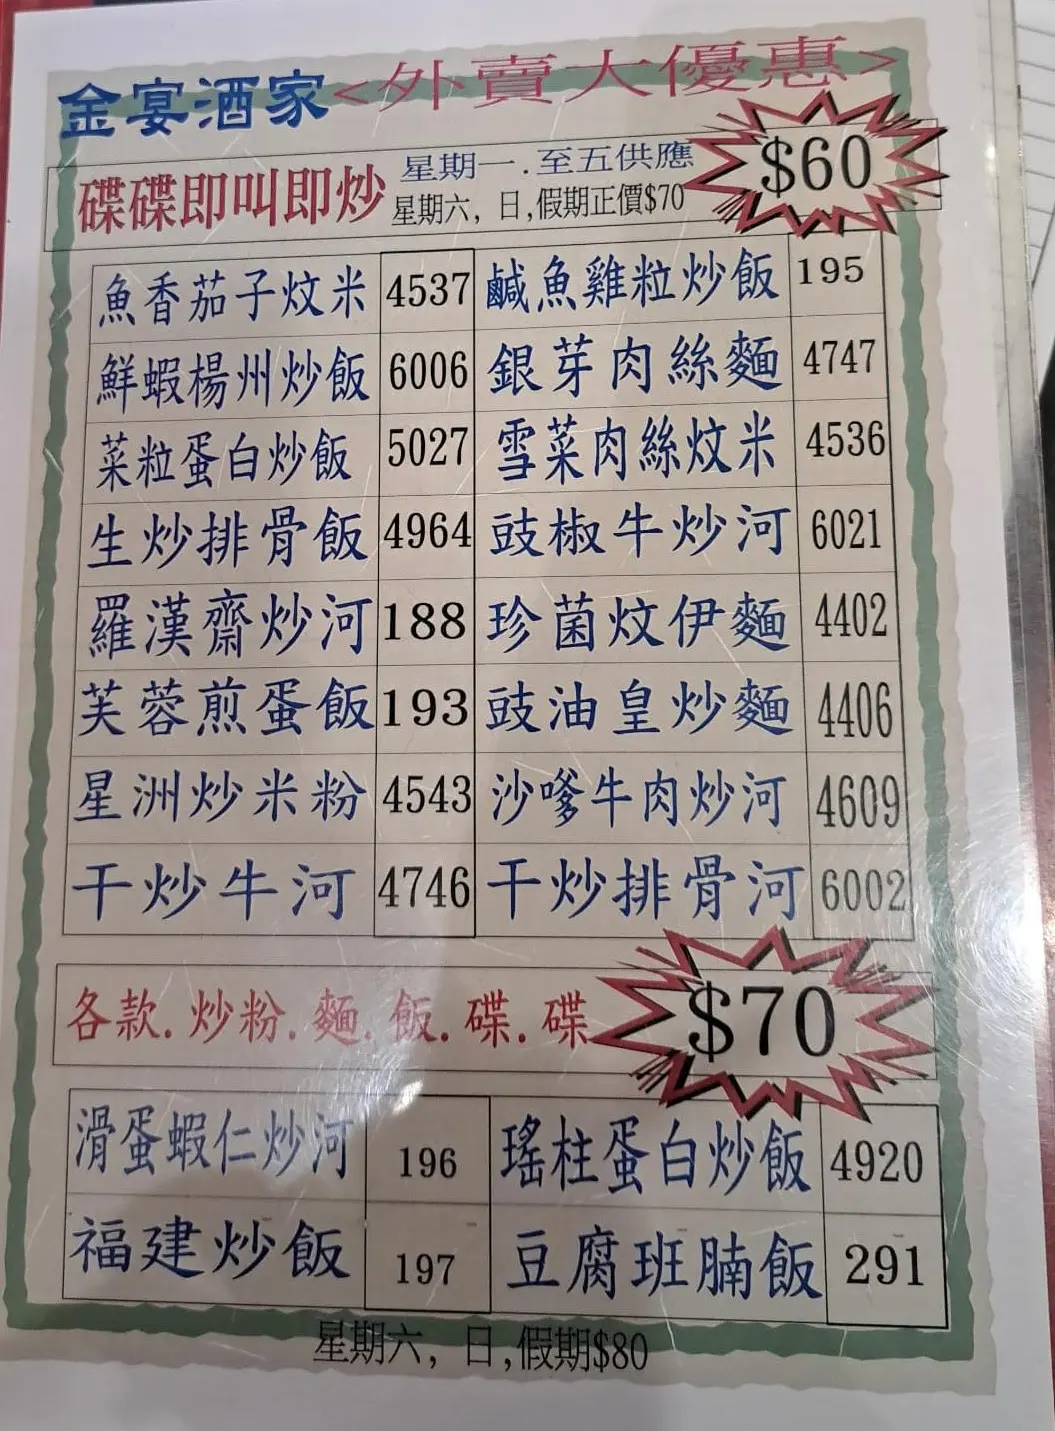 金宴酒家<外賣大優惠>
碟碟即叫即炒 星期一.至五供應 $60
星期六, 日,假期正價$70
魚香茄子炆米 4537 鹹魚雞粒炒飯 195
鮮蝦楊州炒飯 6006 銀芽肉絲麵 4747
菜粒蛋白炒飯 5027 雪菜肉絲炆米 4536
生炒排骨飯 4964 豉椒牛炒河 6021
羅漢齋炒河 188 珍菌炆伊麵 4402
芙蓉煎蛋飯 193 豉油皇炒麵 4406
星洲炒米粉 4543 沙嗲牛肉炒河 4609
干炒牛河 4746 干炒排骨河 6002
各款.炒粉.麵.飯.碟.碟 $70
滑蛋蝦仁炒河 196 瑤柱蛋白炒飯 4920
福建炒飯 197 豆腐班腩飯 291
星期六, 日,假期$80